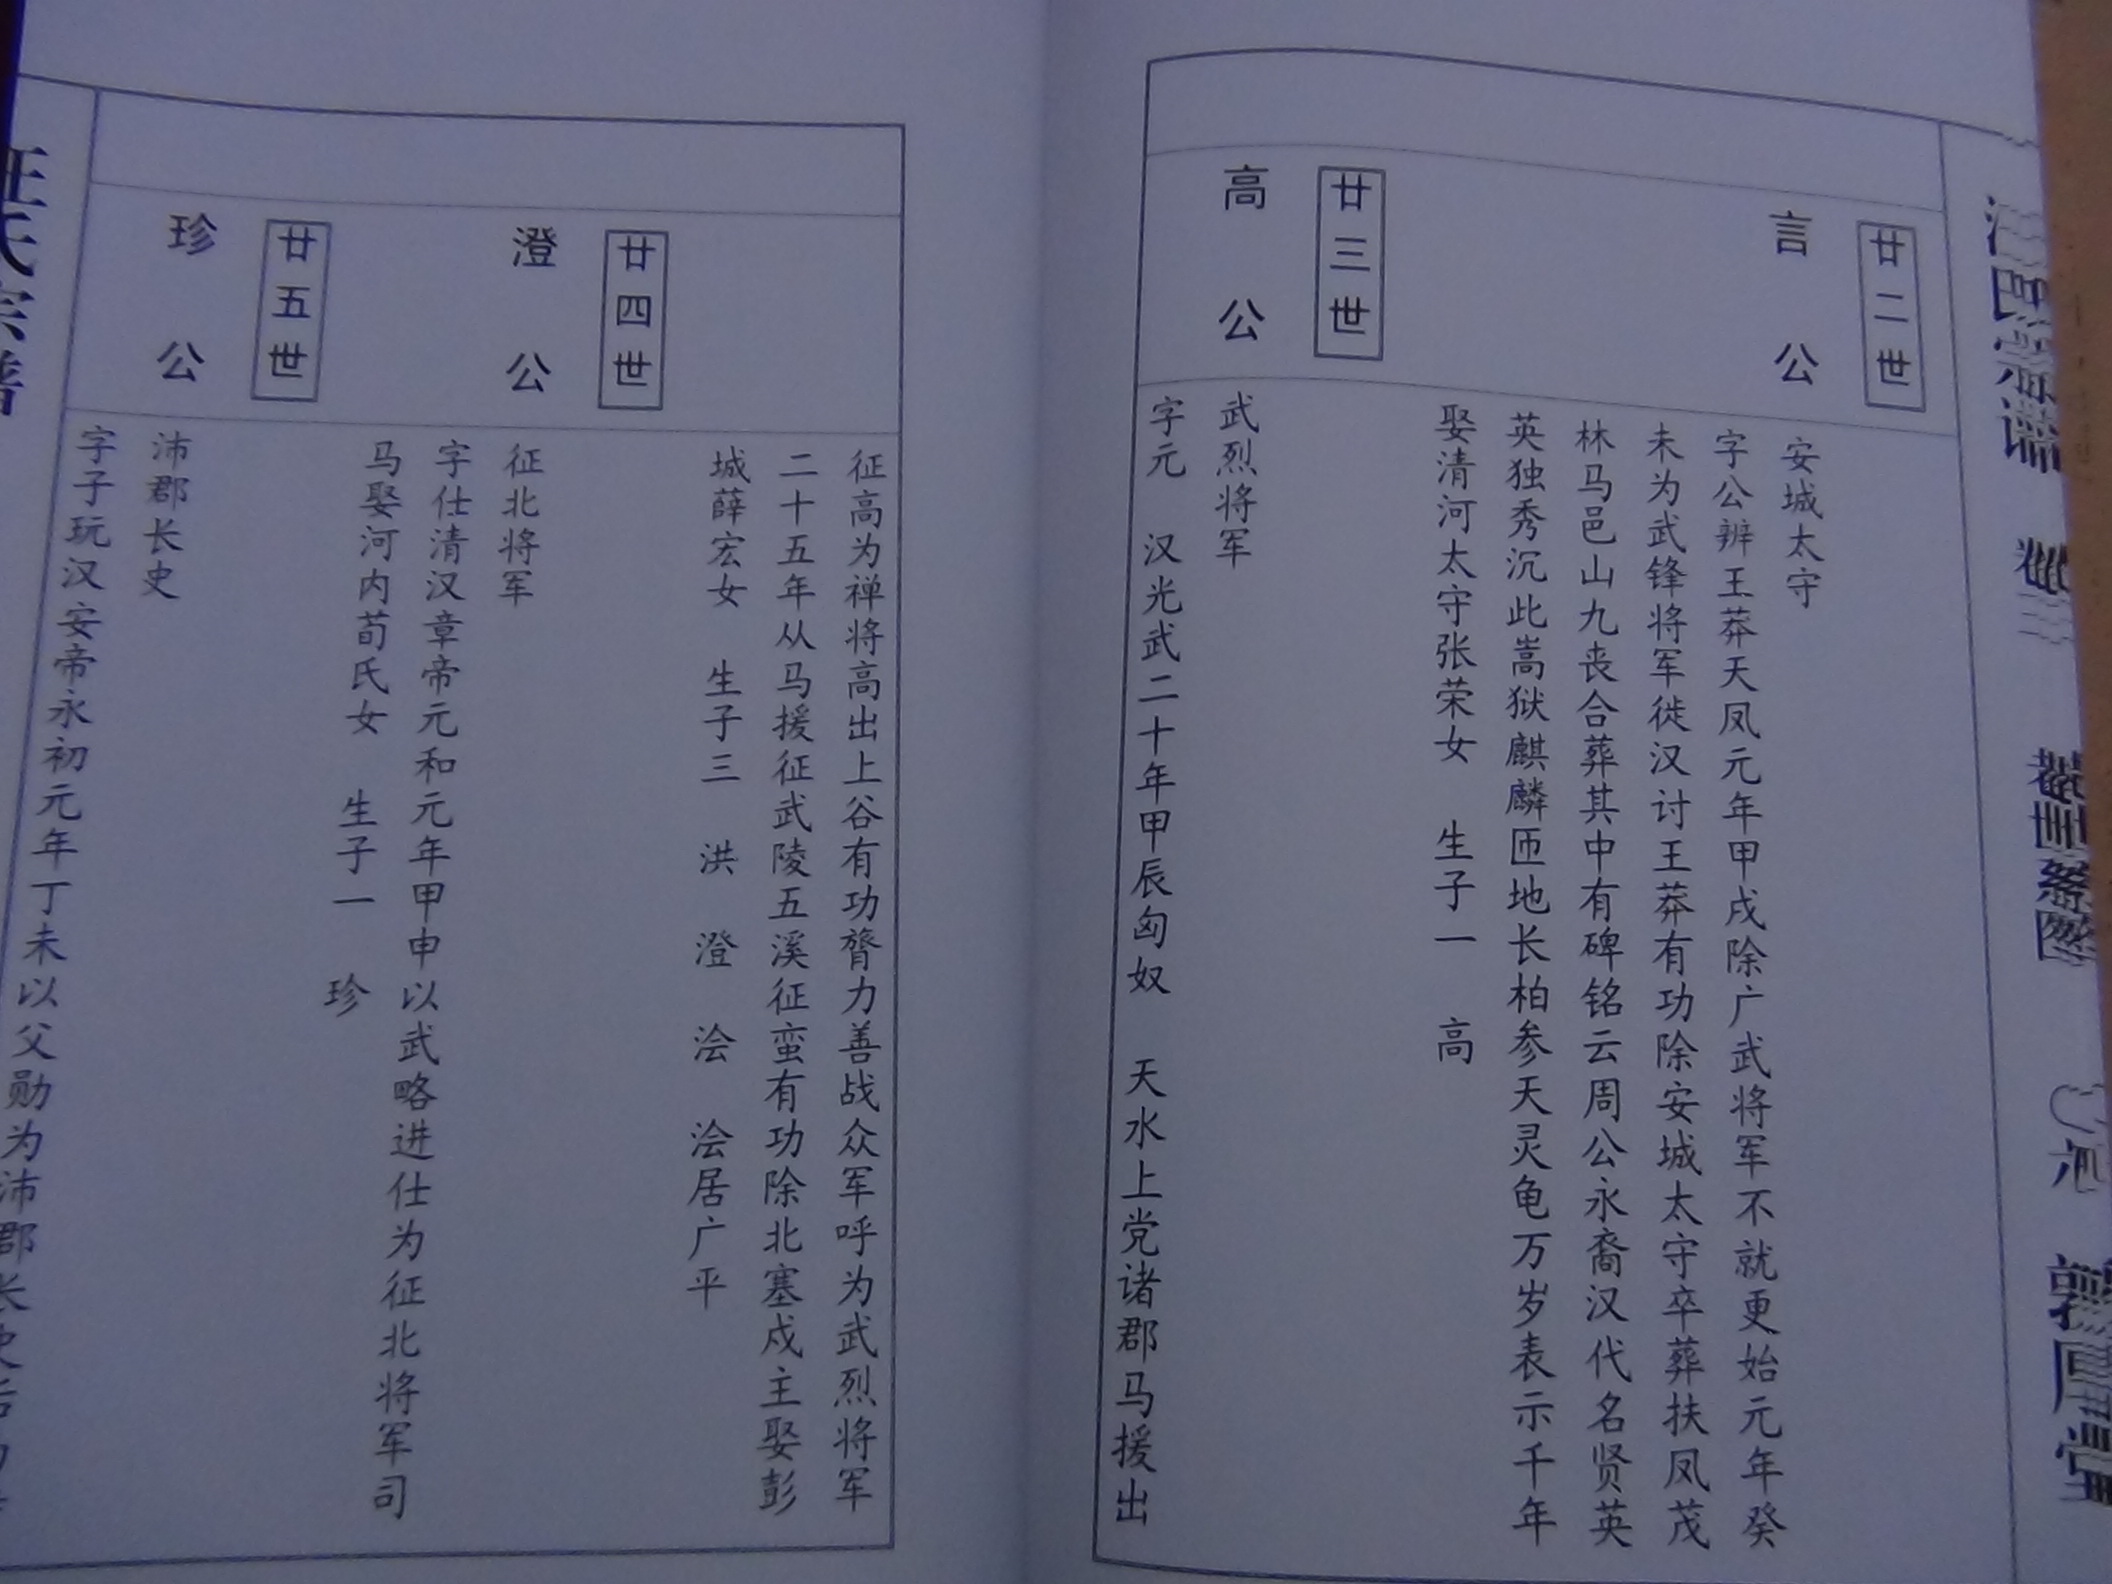 廿二世
言公
安城太守
字公辨王莽天凤元年甲戌除广武将军不就更始元年癸
未为武锋将军徙汉讨王莽有功除安城太守卒葬扶凤茂
林马邑山九丧合葬其中有碑铭云周公永裔汉代名贤英
英独秀沉此嵩狱麒麟匝地长柏参天灵龟万岁表示千年
娶清河太守张荣女 生子一 高
廿三世
高公
武烈将军
字元 汉光武二十年甲辰匈奴 天水上党诸郡马援出
征高为禅将高出上谷有功膂力善战众军呼为武烈将军
二十五年从马援征武陵五溪征蛮有功除北塞戍主娶彭
城薛宏女 生子三 洪 澄 浍 浍居广平
廿四世
澄公
征北将军
字仕清汉章帝元和元年甲申以武略进仕为征北将军司
马娶河内荀氏女 生子一 珍
廿五世
珍公
沛郡长史
字子玩汉安帝永初元年丁未以父勋为沛郡长史
汪氏宗谱